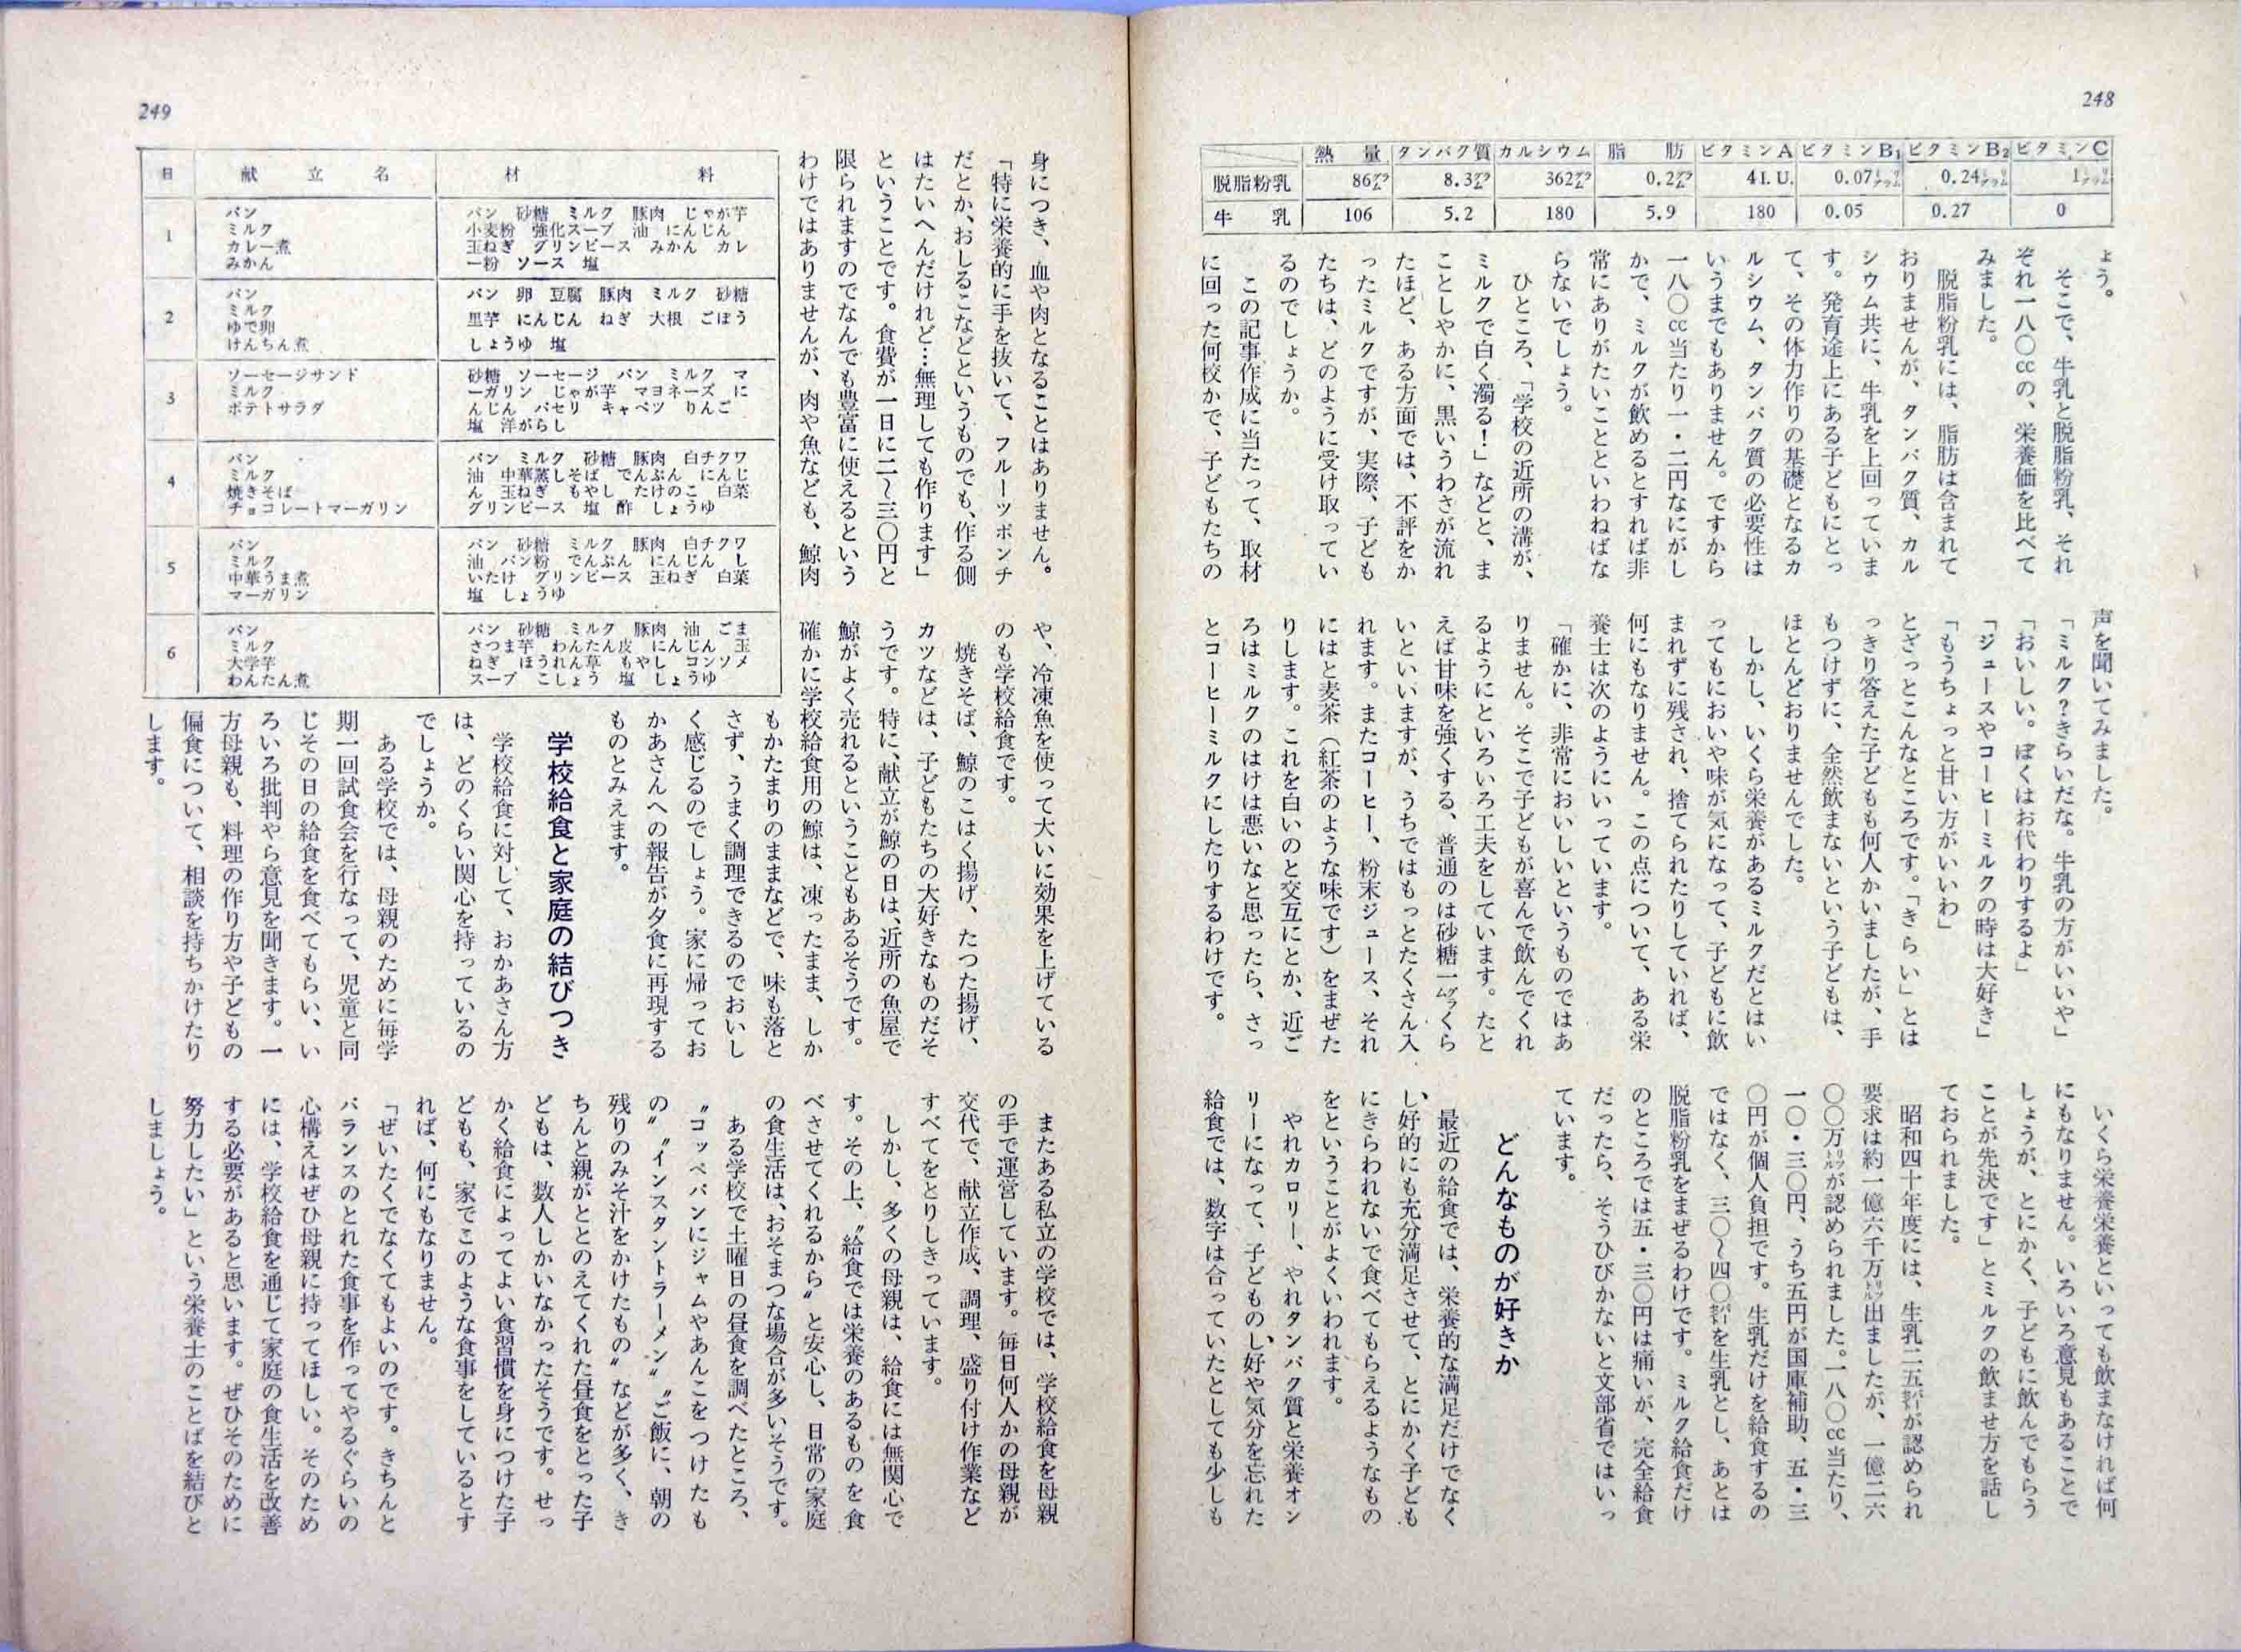 248
熱量 タンパク質 カルシウム 脂肪 ビタミンA ビタミンB₁ ビタミンB₂ ビタミンC
脱脂粉乳 86㌘ 8.3㌘ 362㌘ 0.2㌘ 4I.U. 0.07㍉㌘ 0.24㍉㌘ 1㍉㌘
牛乳 106 5.2 180 5.9 180 0.05 0.27 0
ょう。
そこで、牛乳と脱脂粉乳、それ
ぞれ一八〇ccの、栄養価を比べて
みました。
脱脂粉乳には、脂肪は含まれて
おりませんが、タンパク質、カル
シウム共に、牛乳を上回っていま
す。発育途上にある子どもにとっ
て、その体力作りの基礎となるカ
ルシウム、タンパク質の必要性は
いうまでもありません。ですから
一八〇cc当たり一・二円なにがし
かで、ミルクが飲めるとすれば非
常にありがたいことといわねばな
らないでしょう。
ひところ、「学校の近所の溝が、
ミルクで白く濁る!」などと、ま
ことしやかに、黒いうわさが流れ
たほど、ある方面では、不評をか
ったミルクですが、実際、子ども
たちは、どのように受け取ってい
るのでしょうか。
この記事作成に当たって、取材
に回った何校かで、子どもたちの
声を聞いてみました。
「ミルク?きらいだな。牛乳の方がいいや」
「おいしい。ぼくはお代わりするよ」
「ジュースやコーヒーミルクの時は大好き」
「もうちょっと甘い方がいいわ」
とざっとこんなところです。「きらい」とは
っきり答えた子どもも何人かいましたが、手
もつけずに、全然飲まないという子どもは、
ほとんどおりませんでした。
しかし、いくら栄養があるミルクだとはい
ってもにおいや味が気になって、子どもに飲
まれずに残され、捨てられたりしていれば、
何にもなりません。この点について、ある栄
養士は次のようにいっています。
「確かに、非常においしいというものではあ
りません。そこで子どもが喜んで飲んでくれ
るようにといろいろ工夫をしています。たと
えば甘味を強くする、普通のは砂糖一㌘くら
いといいますが、うちではもっとたくさん入
れます。またコーヒー、粉末ジュース、それ
にはと麦茶(紅茶のような味です)をまぜた
りします。これを白いのと交互にとか、近ご
ろはミルクのはけは悪いなと思ったら、さっ
とコーヒーミルクにしたりするわけです。
いくら栄養栄養といっても飲まなければ何
にもなりません。いろいろ意見もあることで
しょうが、とにかく、子どもに飲んでもらう
ことが先決です」とミルクの飲ませ方を話し
ておられました。
昭和四十年度には、生乳二五㌫が認められ
要求は約一億六千万㍑出ましたが、一億二六
〇〇万㍑が認められました。一八〇cc当たり、
一〇・三〇円、うち五円が国庫補助、五・三
〇円が個人負担です。生乳だけを給食するの
ではなく、三〇〜四〇㌫を生乳とし、あとは
脱脂粉乳をまぜるわけです。ミルク給食だけ
のところでは五・三〇円は痛いが、完全給食
だったら、そうひびかないと文部省ではいっ
ています。
どんなものが好きか
最近の給食では、栄養的な満足だけでなく
し好的にも充分満足させて、とにかく子ども
にきらわれないで食べてもらえるようなもの
をということがよくいわれます。
やれカロリー、やれタンパク質と栄養オン
リーになって、子どものし好や気分を忘れた
給食では、数字は合っていたとしても少しも
249
身につき、血や肉となることはありません。
「特に栄養的に手を抜いて、フルーツポンチ
だとか、おしるこなどというものでも、作る側
はたいへんだけれど…無理しても作ります」
ということです。食費が一日に二〜三〇円と
限られますのでなんでも豊富に使えるという
わけではありませんが、肉や魚なども、鯨肉
日 献立名 材料
1
パン
ミルク
カレー煮
みかん
パン 砂糖 ミルク 豚肉 じゃが芋
小麦粉 強化スープ 油 にんじん
玉ねぎ グリンピース みかん カレ
ー粉 ソース 塩
2
パン
ミルク
ゆで卵
けんちん煮
パン 卵 豆腐 豚肉 ミルク 砂糖
里芋 にんじん ねぎ 大根 ごぼう
しょうゆ 塩
3
ソーセージサンド
ミルク
ポテトサラダ
砂糖 ソーセージ パン ミルク マ
ーガリン じゃが芋 マヨネーズ に
んじん パセリ キャベツ りんご
塩 洋がらし
4
パン
ミルク
焼きそば
チョコレートマーガリン
パン ミルク 砂糖 豚肉 白チクワ
油 中華蒸しそば でんぷん にんじ
ん 玉ねぎ もやし たけのこ 白菜
グリンピース 塩 酢 しょうゆ
5
パン
ミルク
中華うま煮
マーガリン
パン 砂糖 ミルク 豚肉 白チクワ
油 パン粉 でんぷん にんじん し
いたけ グリンピース 玉ねぎ 白菜
塩 しょうゆ
6
パン
ミルク
大学芋
わんたん煮
パン 砂糖 ミルク 豚肉 油 ごま
さつま芋 わんたん皮 にんじん 玉
ねぎ ほうれん草 もやし コンソメ
スープ こしょう 塩 しょうゆ
や、冷凍魚を使って大いに効果を上げている
のも学校給食です。
焼きそば、鯨のこはく揚げ、たつた揚げ、
カツなどは、子どもたちの大好きなものだそ
うです。特に、献立が鯨の日は、近所の魚屋で
鯨がよく売れるということもあるそうです。
確かに学校給食用の鯨は、凍ったまま、しか
もかたまりのままなどで、味も落と
さず、うまく調理できるのでおいし
く感じるのでしょう。家に帰ってお
かあさんへの報告が夕食に再現する
ものとみえます。
学校給食と家庭の結びつき
学校給食に対して、おかあさん方
は、どのくらい関心を持っているの
でしょうか。
ある学校では、母親のために毎学
期一回試食会を行なって、児童と同
じその日の給食を食べてもらい、い
ろいろ批判やら意見を聞きます。一
方母親も、料理の作り方や子どもの
偏食について、相談を持ちかけたり
します。
またある私立の学校では、学校給食を母親
の手で運営しています。毎日何人かの母親が
交代で、献立作成、調理、盛り付け作業など
すべてをとりしきっています。
しかし、多くの母親は、給食には無関心で
す。その上、〝給食では栄養のあるものを食
べさせてくれるから〟と安心し、日常の家庭
の食生活は、おそまつな場合が多いそうです。
ある学校で土曜日の昼食を調べたところ、
〝コッペパンにジャムやあんこをつけたも
の〟〝インスタントラーメン〟〝ご飯に、朝の
残りのみそ汁をかけたもの〟などが多く、き
ちんと親がととのえてくれた昼食をとった子
どもは、数人しかいなかったそうです。せっ
かく給食によってよい食習慣を身につけた子
どもも、家でこのような食事をしているとす
れば、何にもなりません。
「ぜいたくでなくてもよいのです。きちんと
バランスのとれた食事を作ってやるぐらいの
心構えはぜひ母親に持ってほしい。そのため
には、学校給食を通じて家庭の食生活を改善
する必要があると思います。ぜひそのために
努力したい」という栄養士のことばを結びと
しましょう。